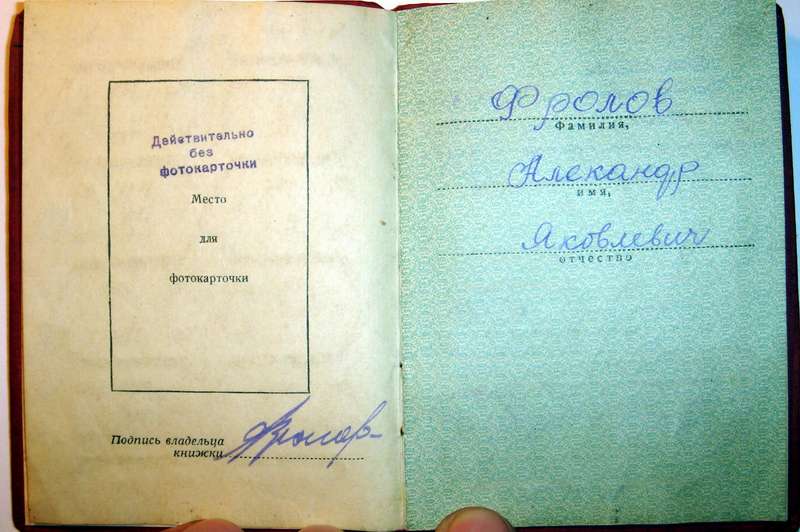 Действительно
без
фотокарточки
Место
для
фотокарточки
Подпись владельца
книжки
Фролов
Фролов
Фамилия,
Александр
имя,
Яковлевич
отчество